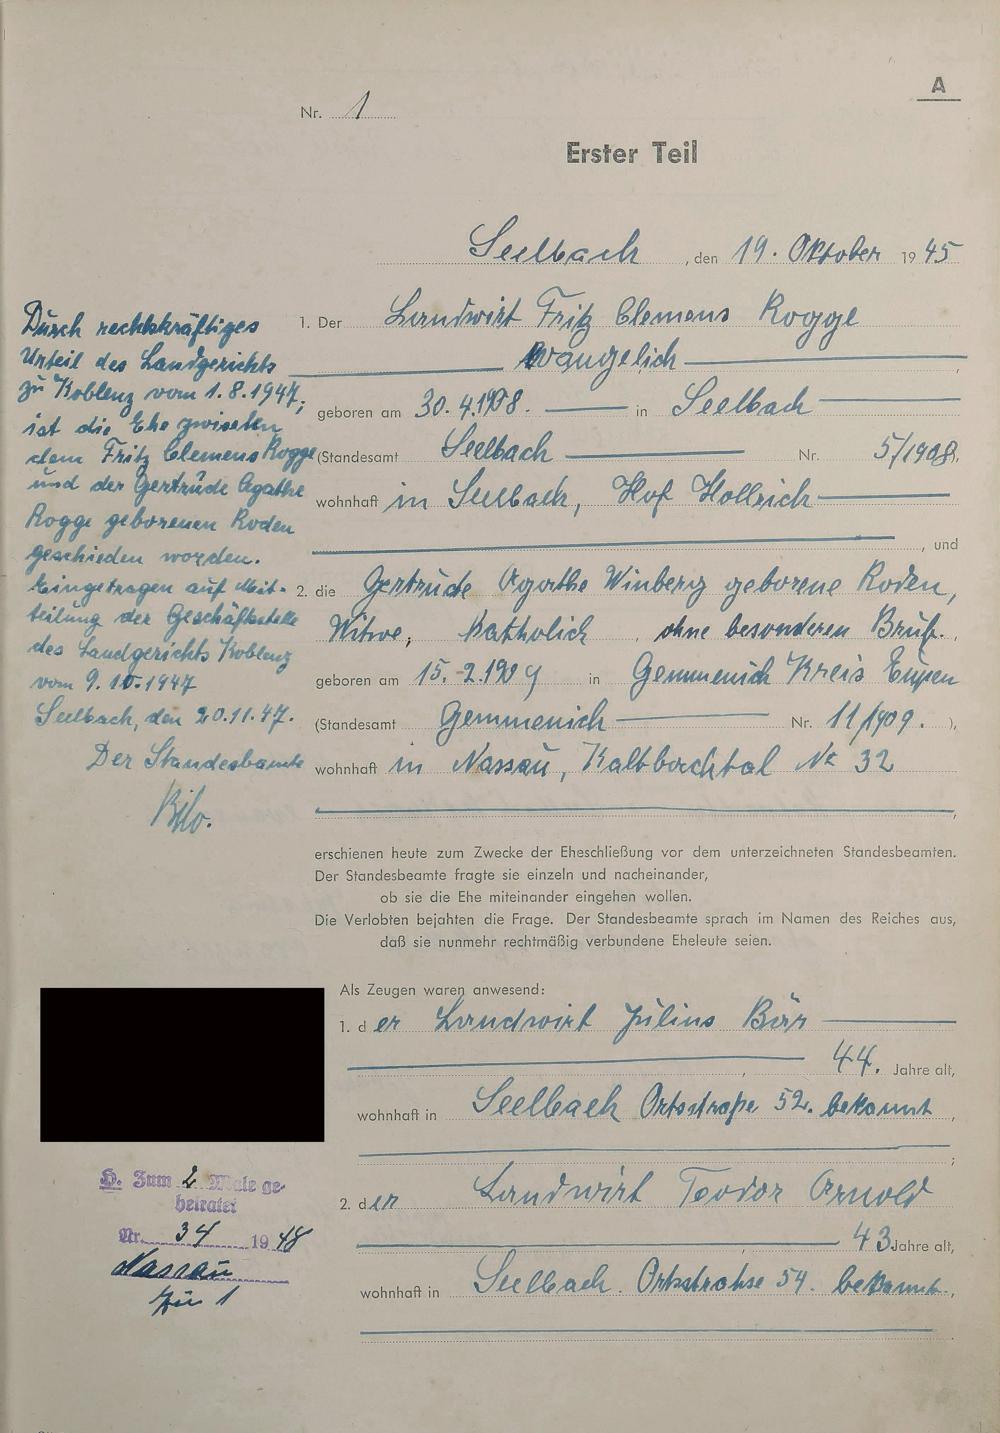 A
Nr. 1
Erster Teil
Seelbach, den 19. Oktober 1945
1. Der Landwirt Fritz Clemens Rogge
evangelich,
geboren am 30.4.1908. in Seelbach
(Standesamt Seelbach Nr. 5/1908.
wohnhaft in Seelbach, Hof Hollrich
, und
2. die Gertrude Agathe Winberg geborene Roden,
Witwe, Katholich, ohne besonderen Bruf.
geboren am 15.-2.1909 in Gemmenich Kreis Eupen
(Standesamt Gemmenich Nr. 11/1909. ),
wohnhaft in Nassau, Kaltbachtal Nr 32
,
Durch rechtskräftiges
Urteil des Landgerichts
zu Koblenz vom 1.8.1947,
ist die Ehe zwischen
dem Fritz Clemens Rogge
und der Gertrude Agathe
Rogge geborenen Roden
geschieden worden.
Eingetragen auf Mit-
teilung der Geschäftsstelle
des Landgerichts Koblenz
vom 9.10.1947
Seelbach, den 20.11.47.
Der Standesbeamte
erschienen heute zum Zwecke der Eheschließung vor dem unterzeichneten Standesbeamten.
Der Standesbeamte fragte sie einzeln und nacheinander,
ob sie die Ehe miteinander eingehen wollen.
Die Verlobten bejahten die Frage. Der Standesbeamte sprach im Namen des Reiches aus,
daß sie nunmehr rechtmäßig verbundene Eheleute seien.
Als Zeugen waren anwesend:
1. der Landwirt Julius Bär
, 44. Jahre alt,
wohnhaft in Seelbach Ortsstraße 52. bekannt,
;
2. der Landwirt Teodor Arnold
, 43 Jahre alt,
wohnhaft in Seelbach. Ortsstrahse 54. bekannt.,
H. Zum 2 Male ge-
heiratet
Nr. 34 1948
Nassau
zu 1